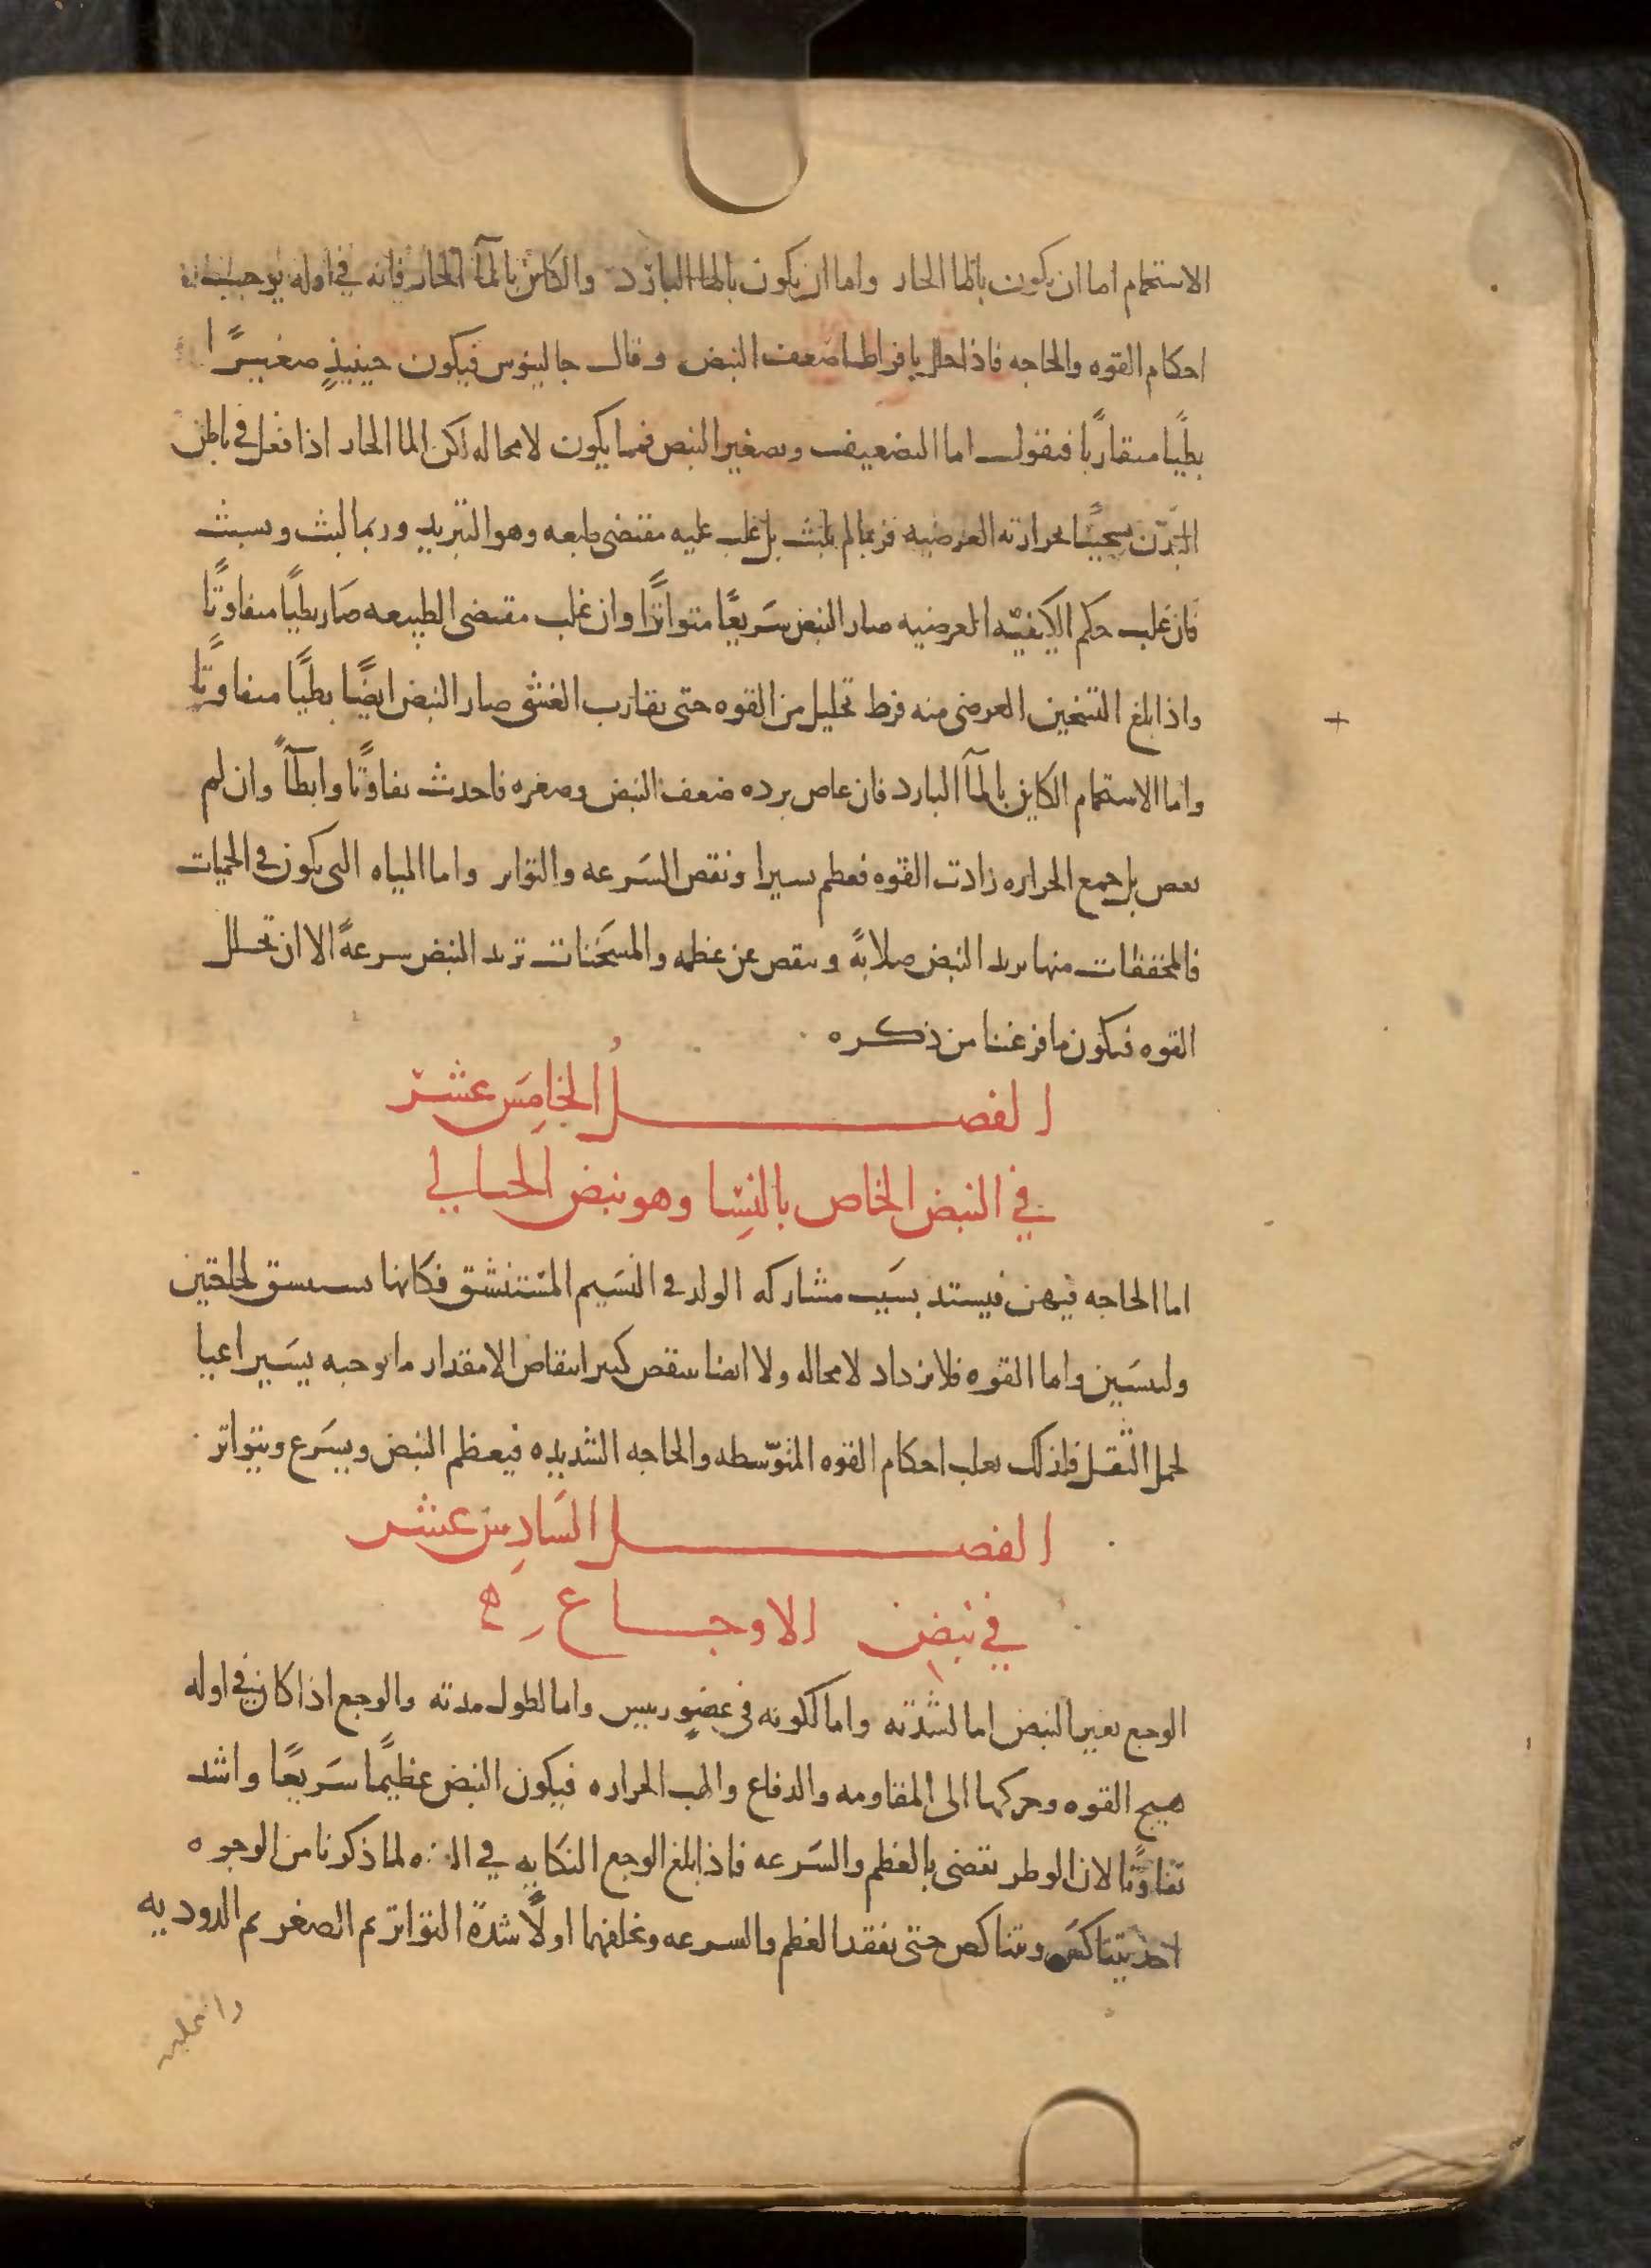 الاستحمام اما ان يكون بالما الحار واما ان يكون بالما البارد والكاين بالمآ الحار فانه في اوله يوجب
احكام القوه والحاجه فاذا حلل بافراط اضعف النبض وقال جالينوس فيكون حينيذٍ صغيرًا
بطيًا متفاوتًا فنقول اما التضعيف وتصغير النبض فمما يكون لا محاله لكن الما الحار اذا فعل في باطن
البدن تسخينًا لحرارته العرضيه فربما لم يلبث بل غلب عليه مقتضى طبعه وهو التبريد وربما لبث وتشبث
فان غلب حكم الكيفيّه العرضيه صار النبض سَريعًا متواترًا وان غلب مقتضى الطبيعه صَار بطيًا متفاوتًا
واذا بلغ التسخين العرضى منه فرط تحليل من القوه حتى يقارب الغشى صار النبض ايضًا بطيًا متفاوتًا
واما الاستحمام الكاين بالمآ البارد فان غاص برده ضعف النبض وصغره فاحدث تفاوتًا وابطآً وان لم
يغص بل جمع الحراره زادت القوه فعظم يسيرا ونقص السَرعه والتواتر واما المياه التى يكون فى الحميات
فالمجففات منها يزيد النبض صلابةً وينقص عن عظمه والمسَخنات تزيد النبض سرعةً الا ان تحلل
القوه فيكون ما فرغنا من ذكره
الفصل الخامِسَ عشر
في النبض الخاص بالنِسّا وهو نبض الحبالي
اما الحاجه فيهن فيشتد بسَبب مشاركه الولد فى النسَيم المسْتنشق فكانها تستنشق لحاجتين
ولنفسَين واما القوه فلا يزداد لا محاله ولا ايضا ينقص كبير انتقاص الا مقدار ما يوجبه يسَير اعيا
لحمل الثقل فلذلك يغلب احكام القوه المتوّسطه والحاجه الشديده فيعظم النبض ويسَرع ويتواتر
الفصل السَادِس عشر
في نبض الاوجاع
الوجع يغير النبض اما لشدته واما لكونه في عضوٍ رييس واما لطول مدته والوجع اذا كان في اوله
هيج القوه وحركها الى المقاومه والدفاع والهب الحراره فيكون النبض عظيمًا سَريعًا واشد
تفاوتًا لان الوطر يقضى بالعظم والسَرعه فاذا بلغ الوجع النكايه في القوه لما ذكرنا من الوجوه
اخذ يتناكس ويتناكص حتى يفقد العظم والسرعه ويخلفهما اولًا شدة التواتر ثم الصغر ثم الدوديه